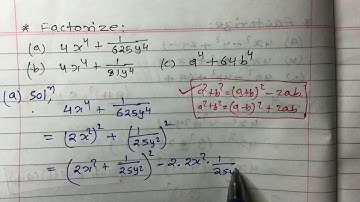 * Factorize:
(a) 4x⁴ + 1/625y⁴
(b) 4x⁴ + 1/81y⁴ (c) a⁴ + 64b⁴
(a) Solⁿ
a²+b² = (a+b)² - 2ab
a²+b² = (a-b)² + 2ab
4x⁴ + 1/625y⁴
= (2x²)² + (1/25y²)²
= (2x² + 1/25y²)² - 2·2x²·1/25y